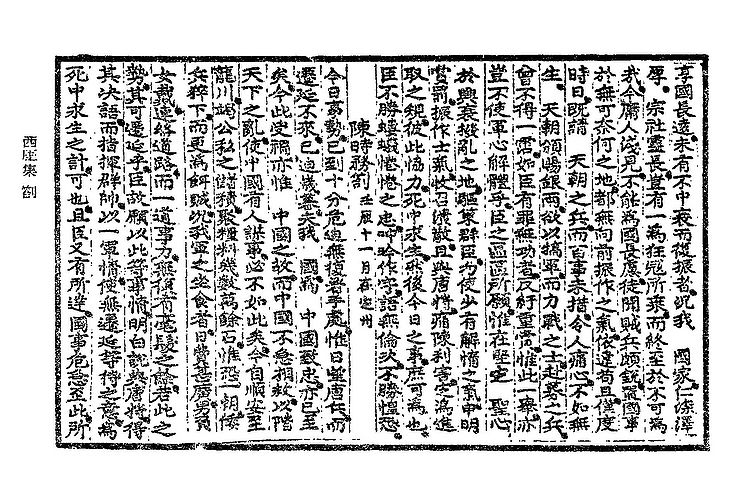 享國長遠未有不中衰而復振者况我 國家仁深澤
厚 宗社靈長豈有一爲狂寇所乘而終至於不可爲
哉今庸人淺見不能爲國長慮徒聞賊兵頗銳置國事
於無可奈何之地都無向前振作之氣依違苟且僅度
時日旣請 天朝之兵而百事未措令人痛心不如無
生 天朝頒賜銀兩欲以犒軍而力戰之士赴募之兵
曾不得一霑如臣有罪無功者反紆重賞惟此一擧亦
豈不使軍心解體乎臣之區區所願惟在堅定 聖心
於興衰撥亂之地驅策群臣勿使少有解惰之氣申明
賞罰振作士氣收召潰散且與唐將痛陳利害密爲進
取之規彼此協力死中求生然後今日之事庶可爲也
臣不勝螻蟻惓惓之忠呻吟作字語無倫次不勝惶恐
陳時務箚 壬辰十一月在定州
今日事勢已到十分危迫無復着手處惟日望唐兵而
遷延不來已迫歲盡矣我 國爲 中國致忠亦已至
矣今此受禍亦惟 中國之故而中國不急相救以階
天下之亂使中國有人謀事必不如此矣今自順安至
龍川竭公私之儲積聚糧料幾數萬餘石惟恐一朝倭
兵猝下而更爲餌賊况我軍之坐食者日費甚廣男負
女戴連絡道路而一道事力無復有毫髮之餘若此之
勢其可遷延乎臣故願以此等事情明白說與唐將得
其決語而指揮群帥以一軍情使無遷延等待之意爲
死中求生之計可也且臣又有所達國事危急至此所
西厓集 箚